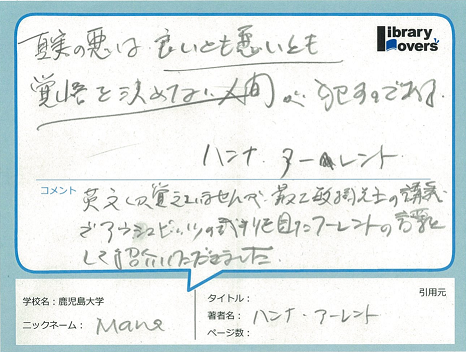 Library Lovers'
真実の悪は、良いとも悪いとも
覚悟を決めてない人間が犯すのである。
ハンナ・アーレント
コメント
英文しか覚えていませんが、最上敏樹先生の講義
でアウシュビッツの裁判を見たアーレントの言葉と
して紹介いただきました。
学校名：鹿児島大学
ニックネーム： Mana
引用元
タイトル：
著者名： ハンナ・アーレント
ページ数：